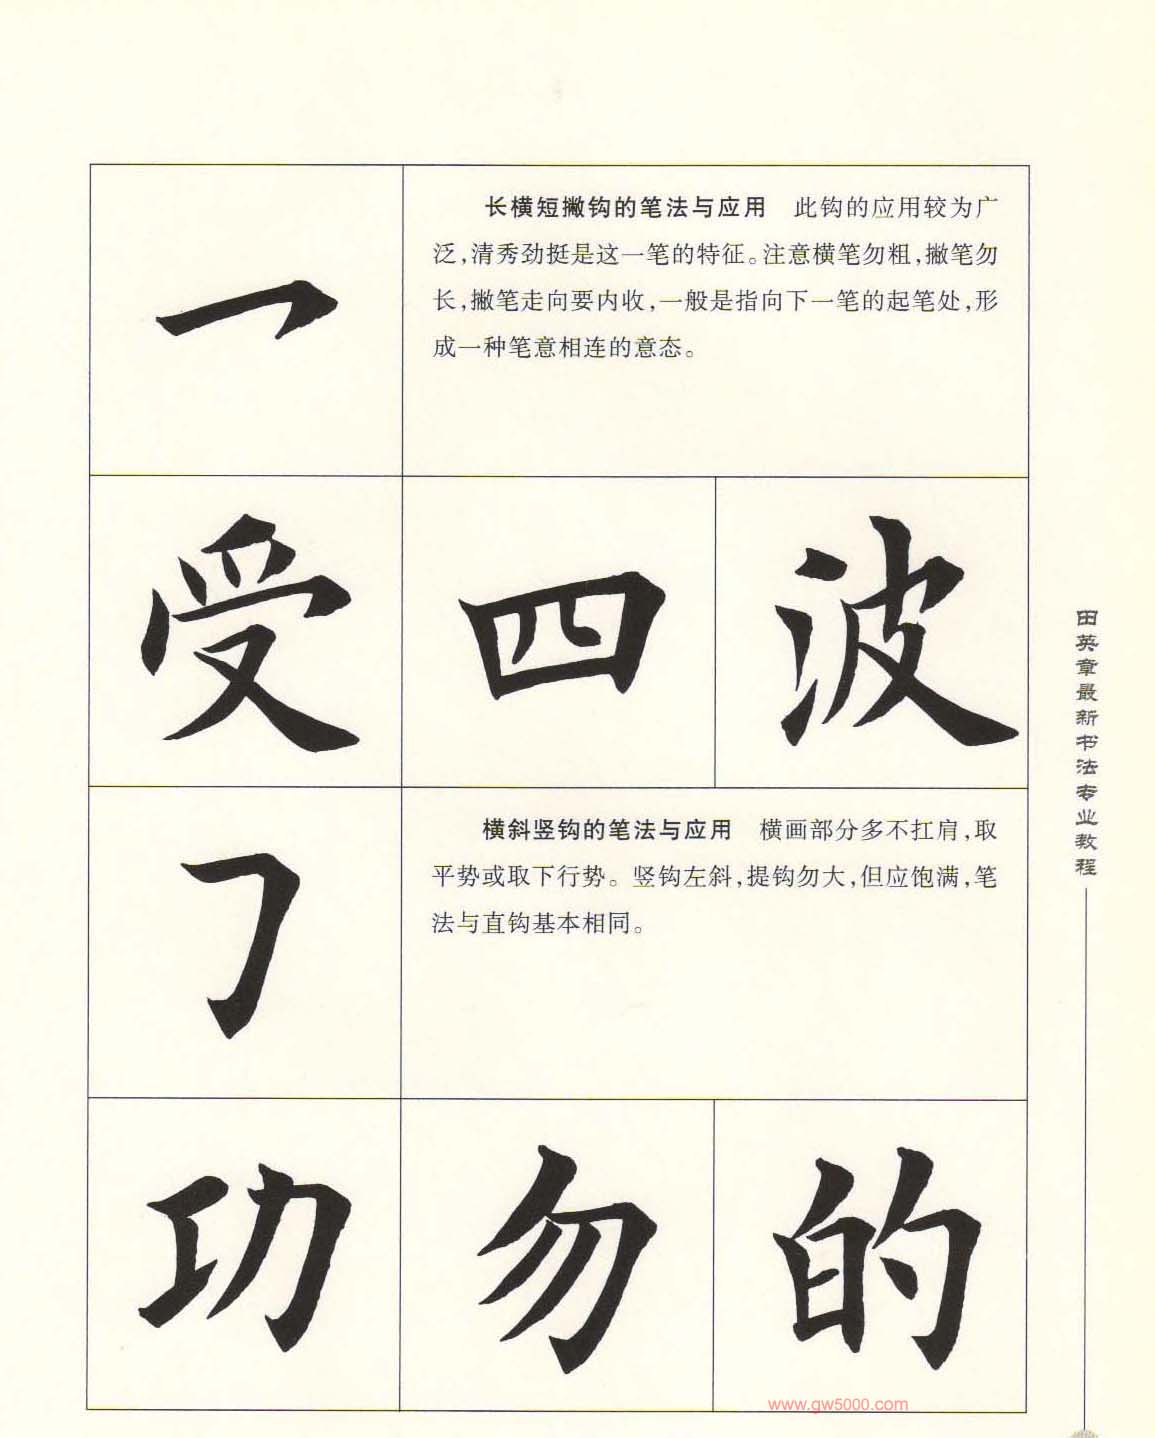 长横短撇钩的笔法与应用　此钩的应用较为广
泛,清秀劲挺是这一笔的特征。注意横笔勿粗,撇笔勿
长,撇笔走向要内收,一般是指向下一笔的起笔处,形
成一种笔意相连的意态。
受 四 波
横斜竖钩的笔法与应用　横画部分多不扛肩,取
平势或取下行势。竖钩左斜,提钩勿大,但应饱满,笔
法与直钩基本相同。
功 勿 的
田英章最新书法专业教程
www.gw5000.com